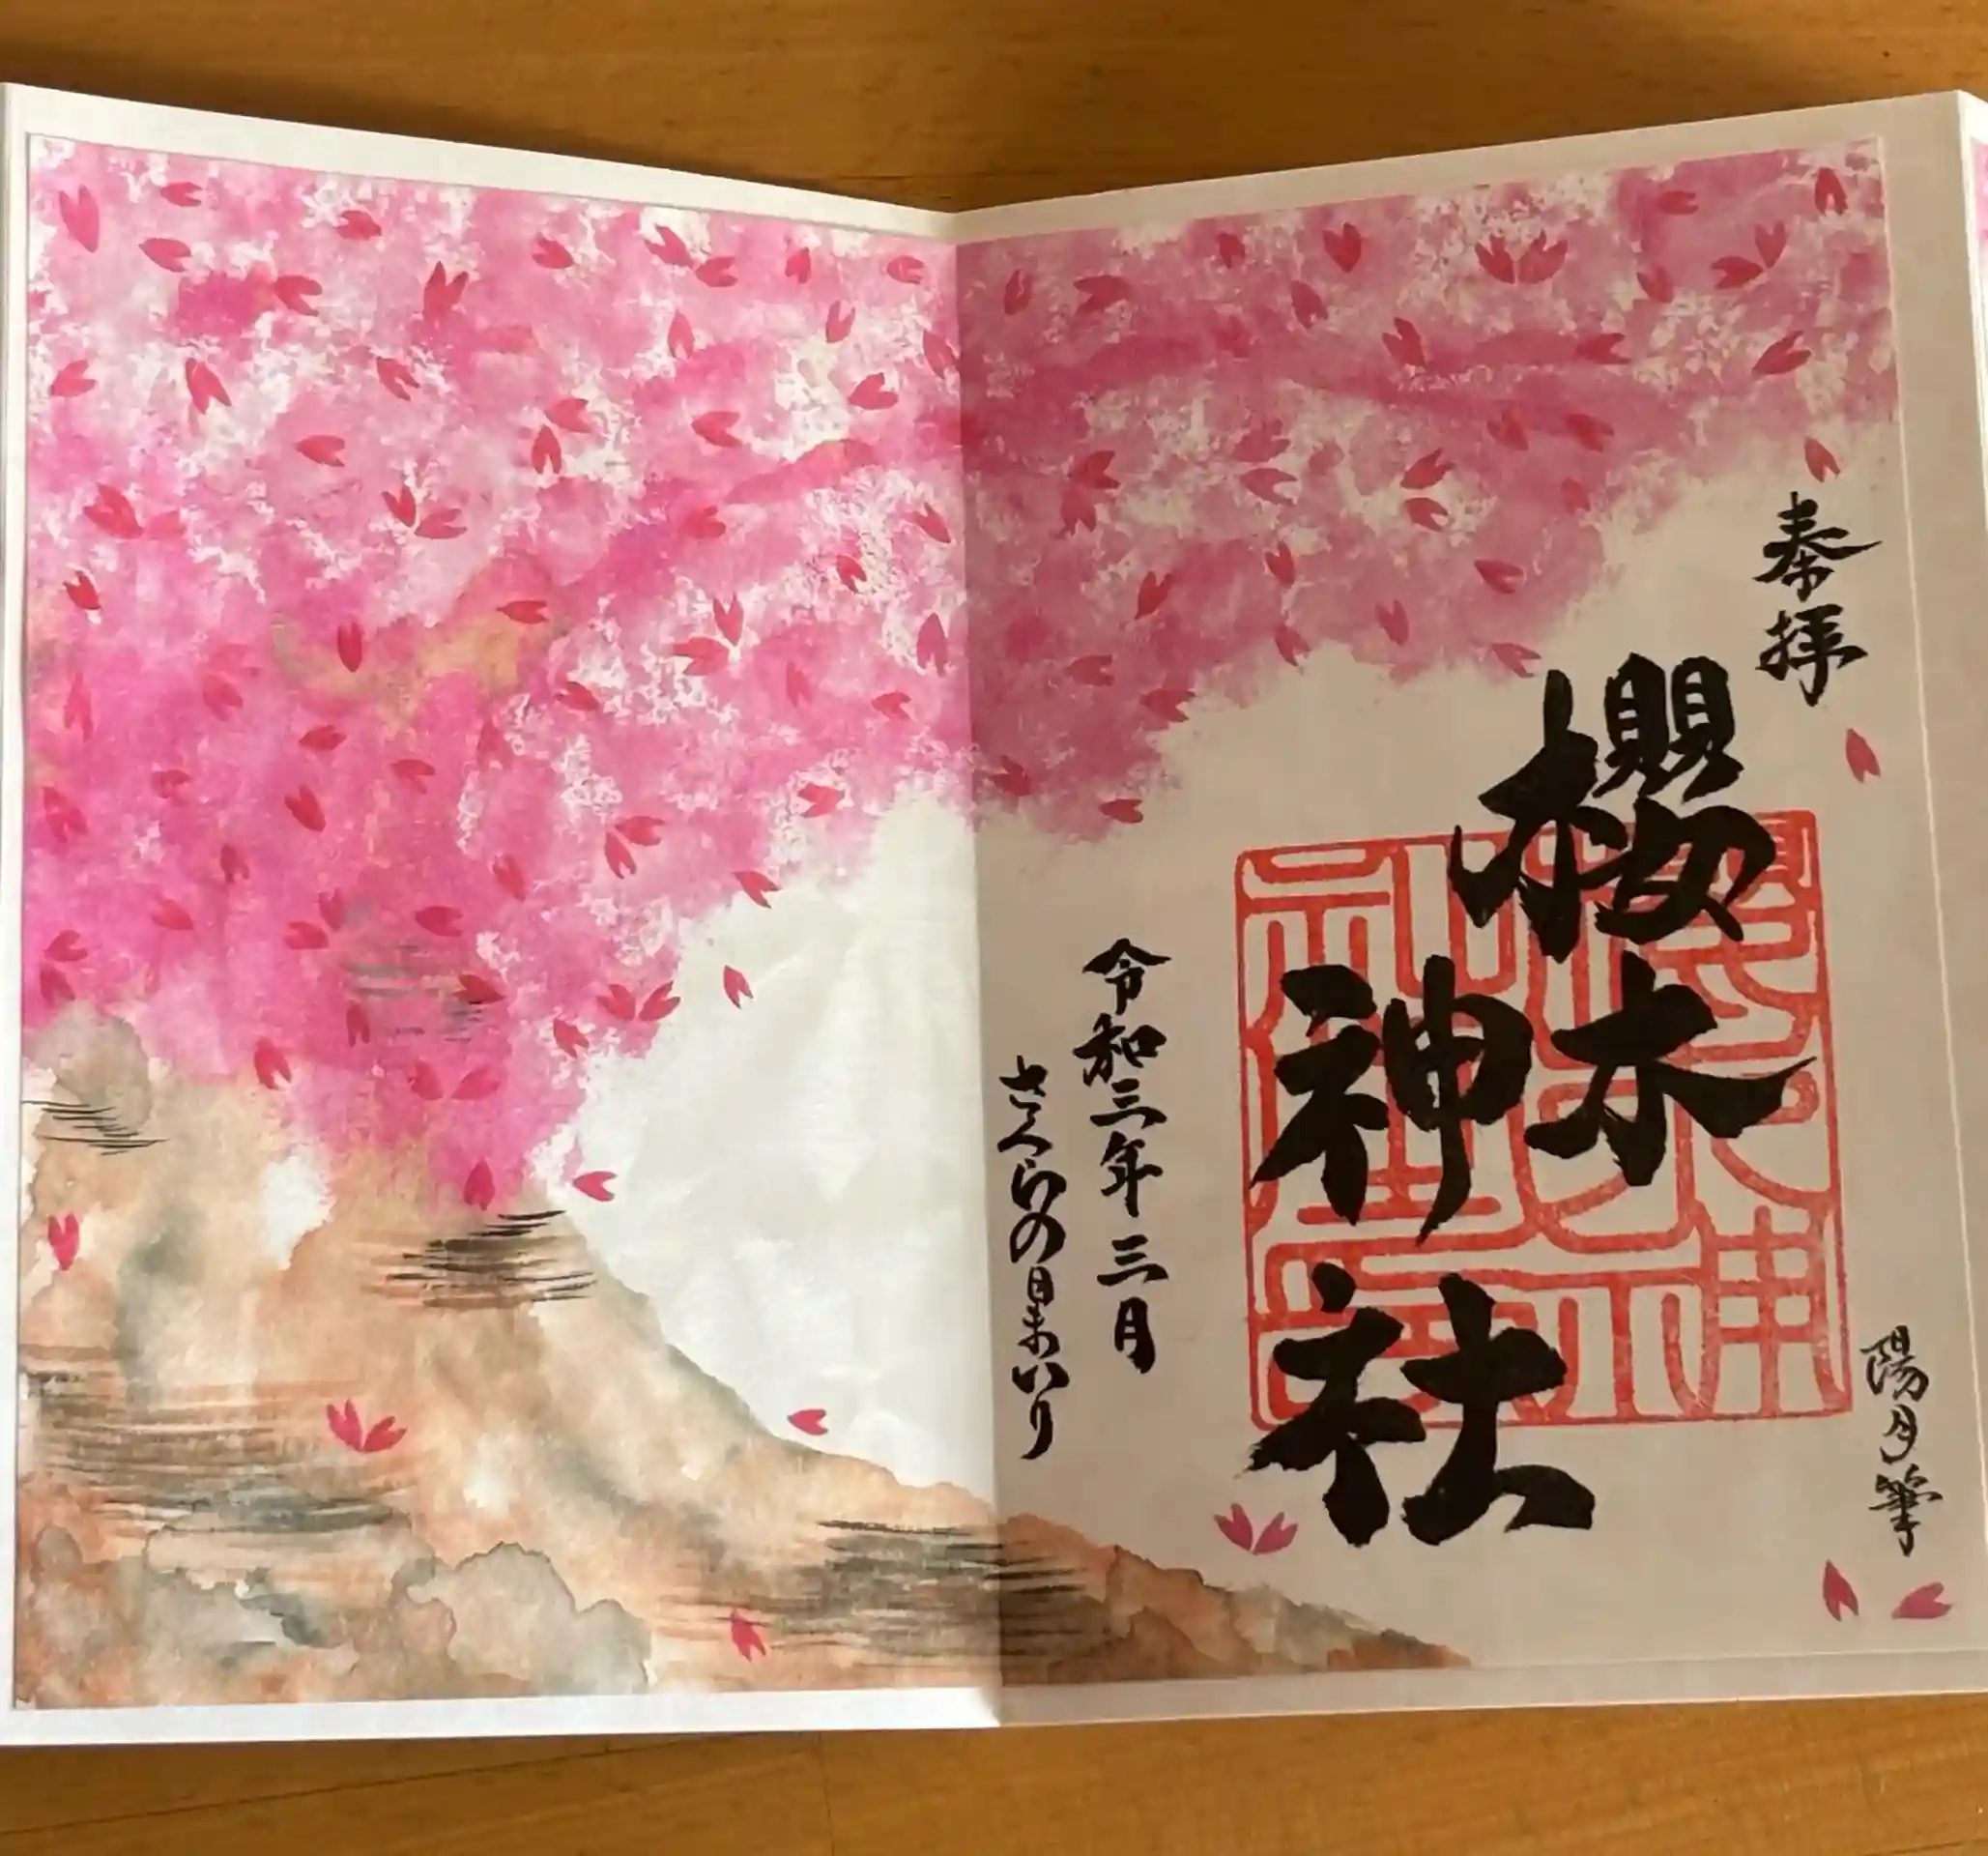 奉拝
櫻木神社
令和三年三月
さくらの日まいり
陽月筆